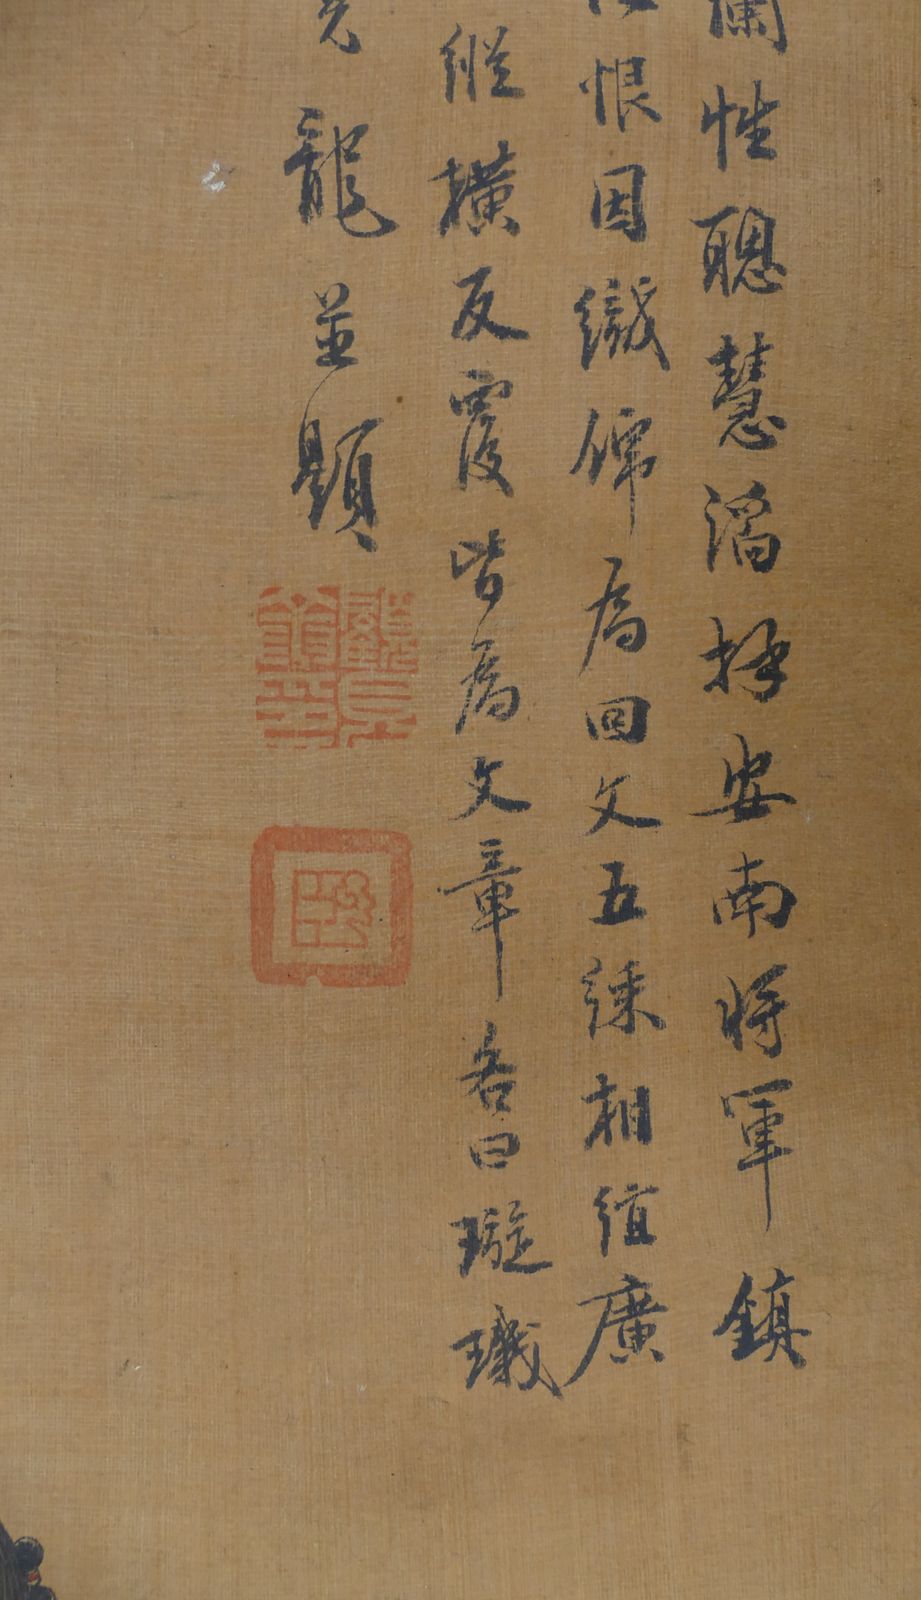 蘭性聰慧滔拜安南將軍鎮
恨因織錦為回文五綵相宣廣
縱橫反覆皆為文章名曰璇璣
龍並題